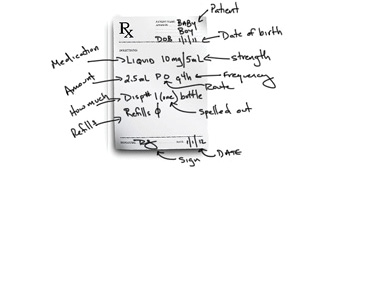 Patient
Rx
BABY
BOY
DOB 1/1/12
Date of birth
Medication
Liquid 10mg/5mL
Strength
Amount
2.5mL PO q4h
Frequency
Route
How much
Disp# 1 (one) bottle
Spelled out
Refills
Refills ϕ
1/1/12
Sign
DATE